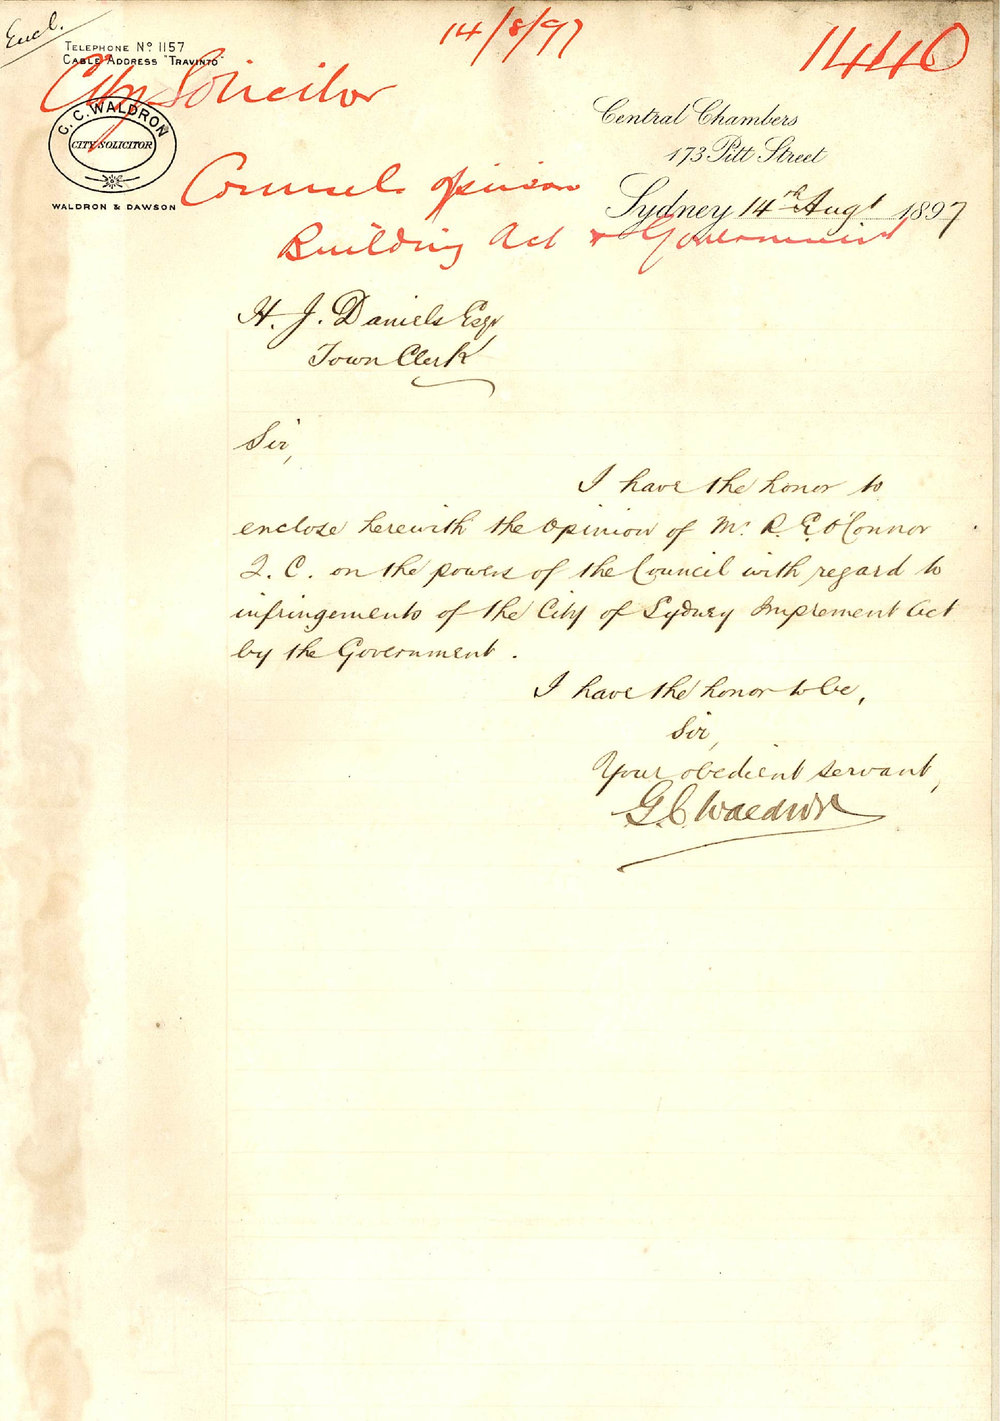 Encl.
14/8/97
1440
TELEPHONE No 1157
CABLE ADDRESS "TRAVINTO"
City Solicitor
G. C. WALDRON
CITY SOLICITOR
WALDRON & DAWSON
Central Chambers
173 Pitt Street
Sydney 14th Augt 1897
Counsels opinion
Building Act & Government
H. J. Daniels Esqr
Town Clerk
Sir,
I have the honor to
enclose herewith the Opinion of Mr. R. E. O'Connor
Q. C. on the powers of the Council with regard to
infringements of the City of Sydney Imprement Act
by the Government.
I have the honor to be,
Sir,
Your obedient servant,
G. C. Waldron